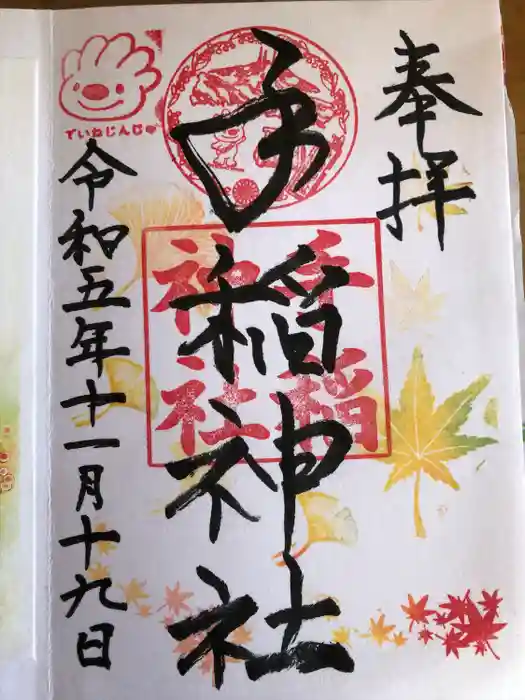 奉拝
手稲神社
手稲神社
ていねじんじゃ
令和五年十一月十九日